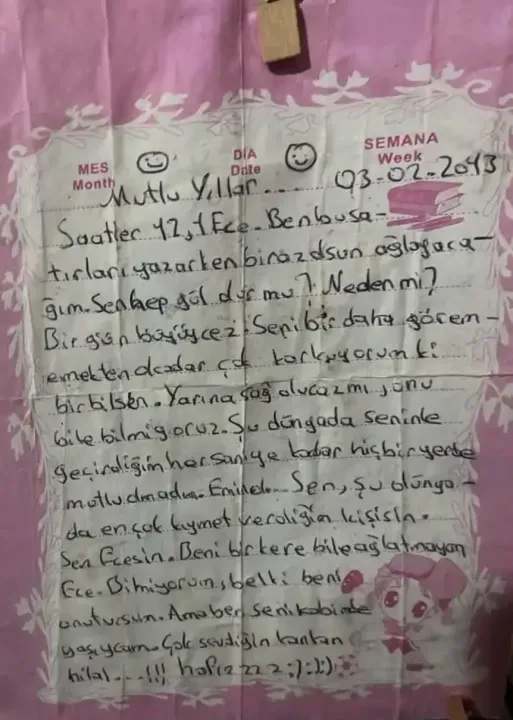 MES DIA SEMANA
Month Date Week
Mutlu Yıllar.... 03.02.2013
Saatler 12,1 Ece. Ben bu sa-
tırları yazarken biraz dsun ağlayaca-
ğım. Sen hep gül dur mu? Neden mi?
Bir gün büyüycez. Seni bir daha görem-
emekten okadar çok korkuyorum ki
bir bilsen. Yarına sağ olucazmı şunu
bile bilmiyoruz. Şu dünyada seninle
geçirdiğim her saniye kadar hiçbir yerde
mutlu olmadım. Sen, şu dünya-
da en çok kıymet verdiğim kişisin.
Sen Ecesin. Beni bir kere bile ağlatmayan
Ece. Bilmiyorum, belki beni
unutursun. Ama ben seni kalbimde
yaşıycam. Çok sevdiğin kankan
hilal...!!! hafızzzz :) :) :)